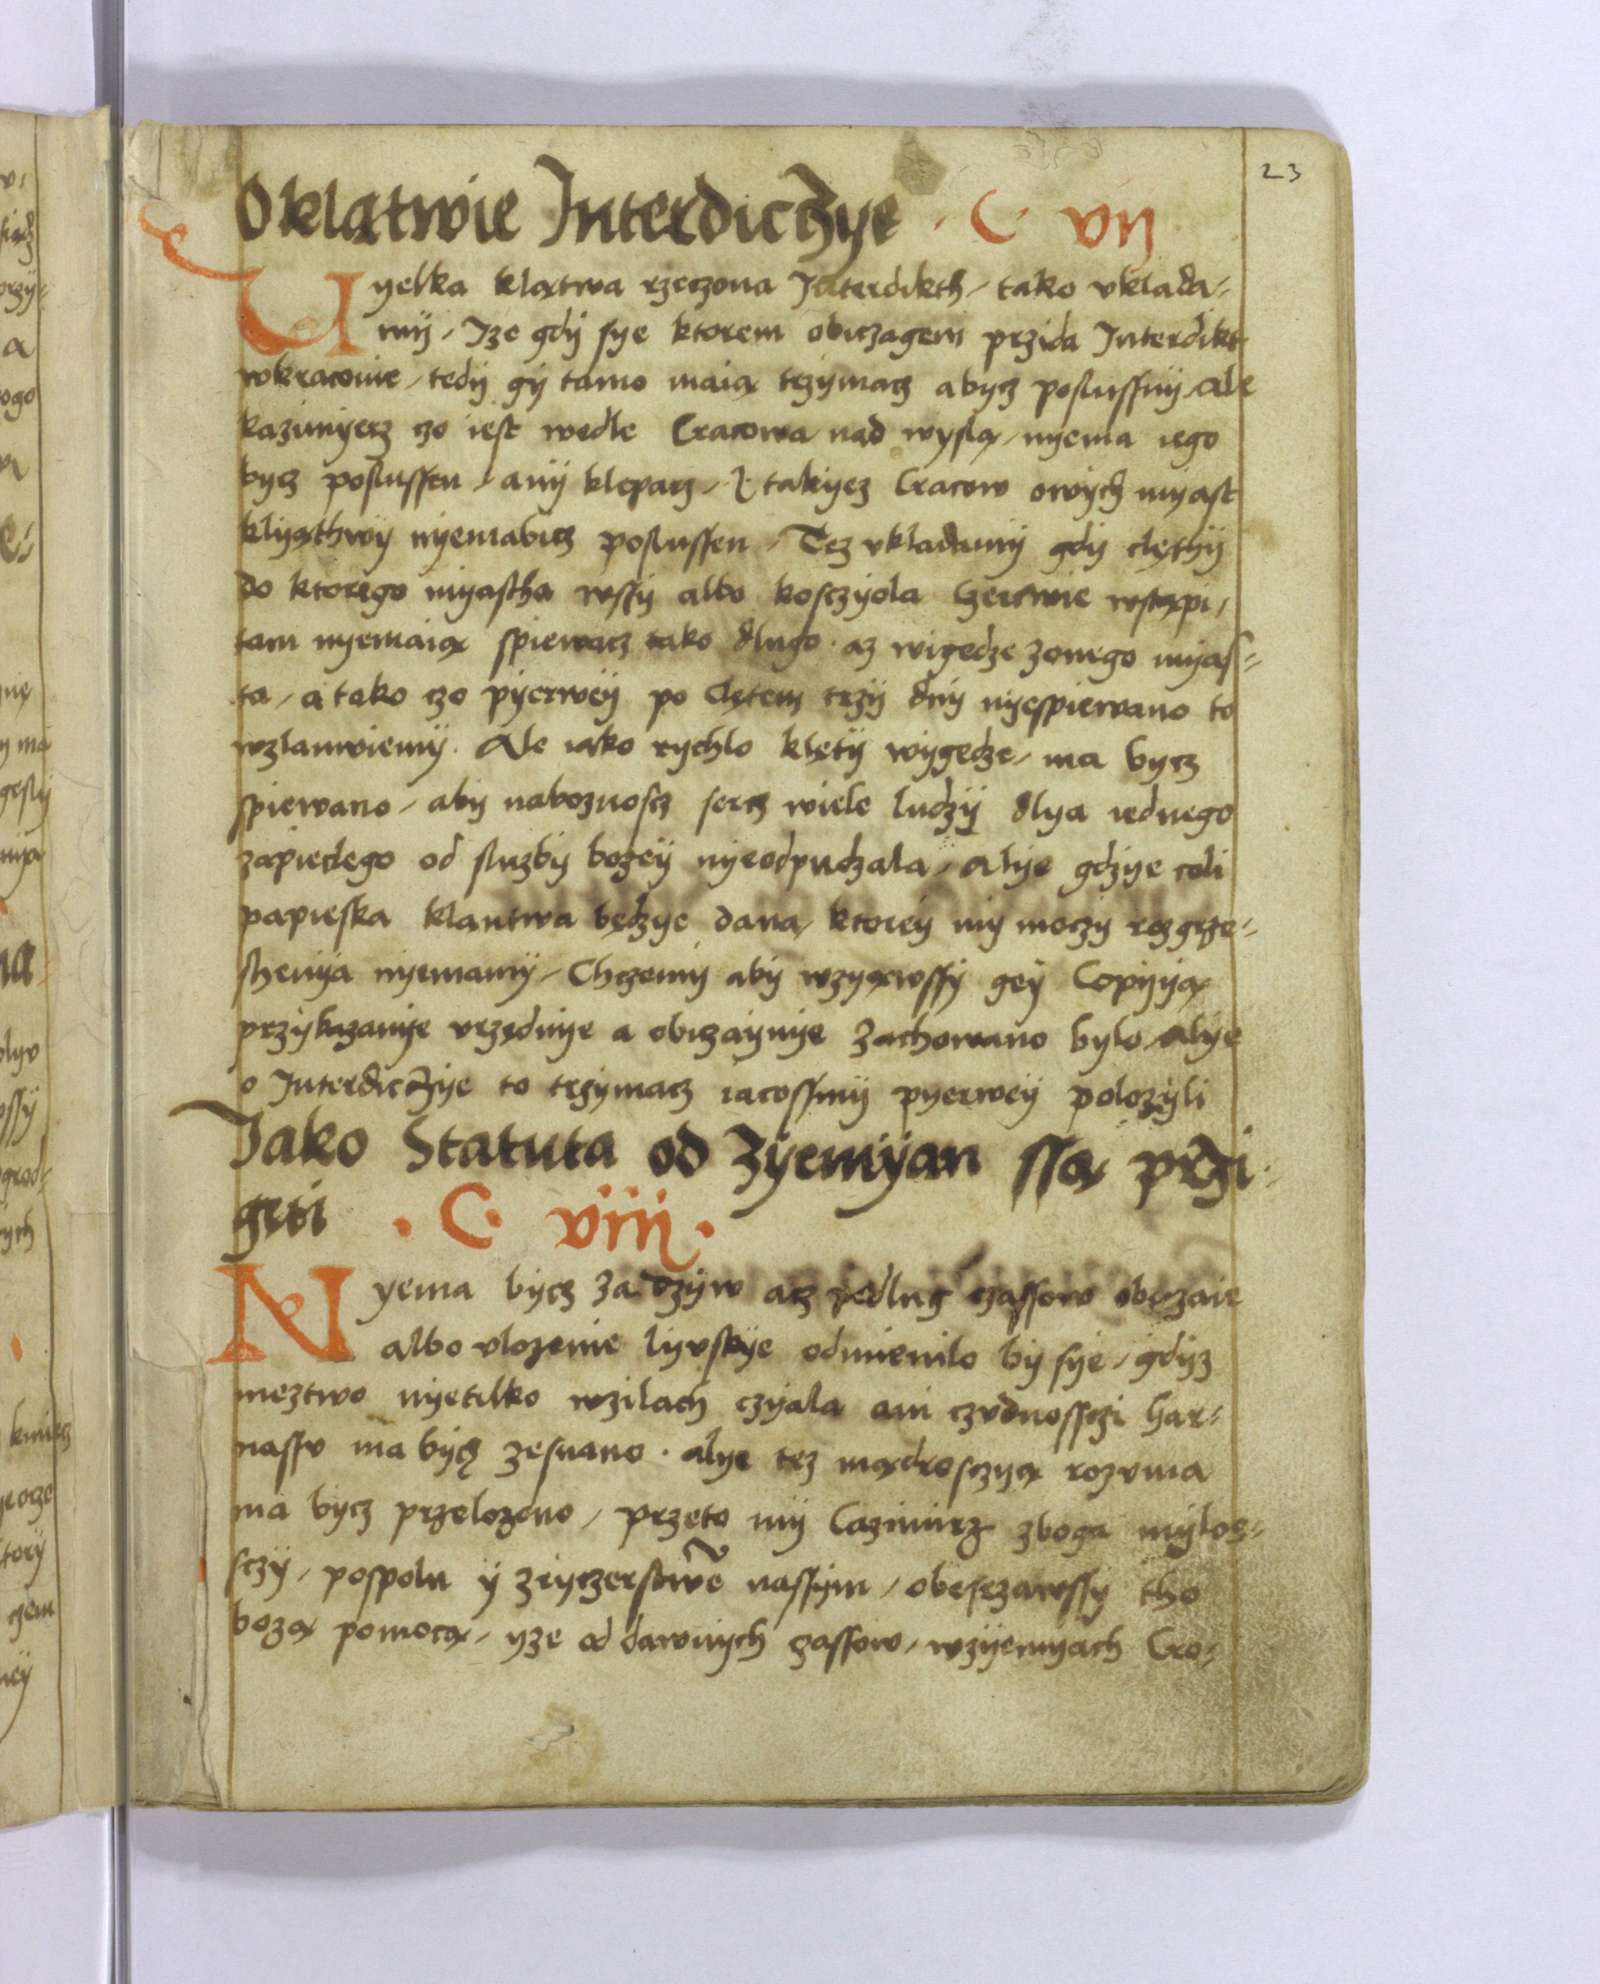 23
O klątwie Interdicżye · C· vij
Vyelka klątwa rzeczona Interdikth / tako vklada-
mÿ / Jze gdÿ sye ktorem obiczagem przida Interdikt
wkracowie / tedÿ gÿ tamo maią trzymacz a bycz poslussnÿ Ale
kazimyerz czo iest wedle Cracowa nad wyslą / nyema iego
bycz poslussen / anÿ kleparz / takyez Cracow owÿch myast
klyąthwÿ nyemabicz poslussen / Tez vkladamÿ gdÿ clęthÿ
do ktorego myastha wssÿ albo kosczyola Czerwie wstąpi /
tam nyemaią spiewacz tako dlugo · az wigedze zonego myas-
ta / a tako czo pÿerwey po Clętem trzÿ dnÿ nyespiewano to
wzlamviemÿ · Ale iako rychlo klętÿ wygedze / ma bycz
spiewano / abÿ naboznoscz sercz wiele ludzÿ dlya iednego
zapieclego od sluzbÿ bozeÿ nyeodpudzala / Alye gdzye coli
papieska klantwa bedzye dana / ktoreÿ mÿ moczÿ rozgrze-
shenÿa nyemamÿ / Chczemÿ abÿ wzyąwssÿ geÿ Copÿyą
przÿkazanÿe vrzędnÿe a obiczaynye Zachowano bylo Alye
o Interdicżye to trzymacz iacossmÿ pyerweÿ polozÿli
Jako Statuta od Zÿemÿan ssą przi-
gęti · C· viij ·
Nyema bycz Za dzÿw acz podlug czassow obyczaie
albo vlozenie lyvskÿe odmienilo bÿ sÿe / gdÿz
meztwo nyetilko wzilach czyala ani czvdnossczi har-
nassv ma bÿcz zesnano · alye tez mądrosczyą rozvma
ma bycz przelozono / przeto mÿ Cazimirz zboga mÿlos-
sczÿ / pospolu ÿ zrÿczerstwē nassÿm / obezrzawssÿ tho
bozą pomocą / yze od dawnÿch czassow / wzÿemyach Cro-